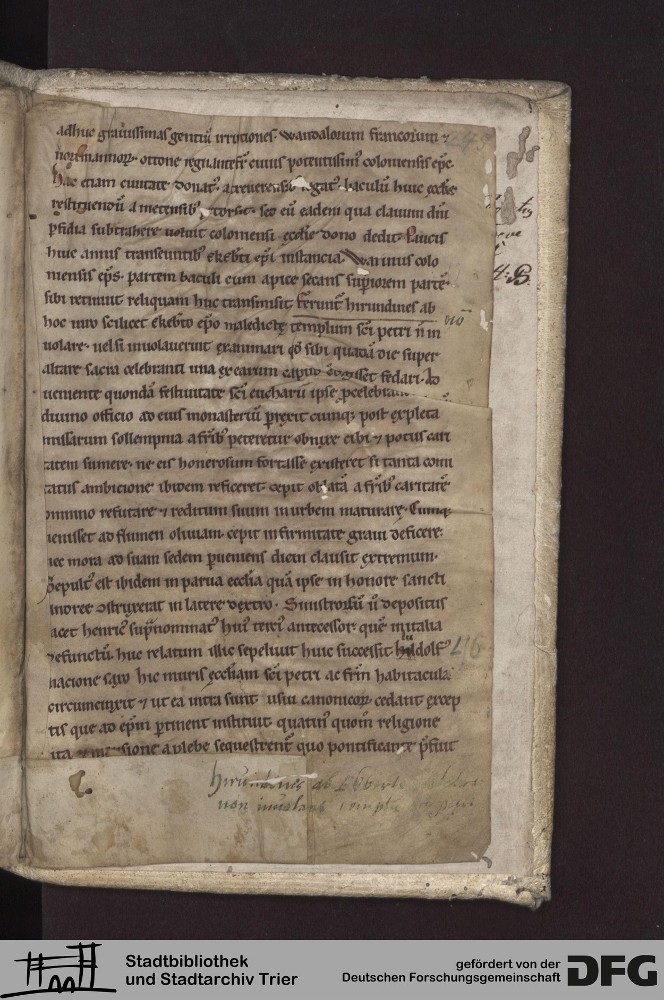 adhuc grauissimas gentiū irruptiones. wandalorum francorum ⁊
normannorꝝ. ottone regnante cuius potentissimꝰ coloniensis epc̄.
hac etiam ciuitate donatꝰ. a treuerensib; rogatꝰ. baculū huic ecclie
restituendū a metensib; torsit. sed eū eadem qua clauum dn̄i
ꝑfidia subtrahere uoluit coloniensi ecclie dono dedit. Paucis
huic annis transeuntib; ekebti epi instancia. Warinus colo
niensis ep̄s. partem baculi cum apice secans supiorem partē.
sibi retinuit reliquam huc transmisit. ferunt hirundines ab
hoc uiro scilicet ekebto ep̄o maledictę templum sc̄i petri n̄ in
uolare. uel si inuolauerint exanimari qd̄ sibi quadā die super
altare sacra celebranti una ex earum caput fedari. Ad
uemente quondā festiuitate sc̄i eucharii ipse
diuino officio ad eius monasteriū ꝑrexit cumq; post expleta
missarum sollempnia a frib; peteretur obnixe cibi ⁊ potus cari
tatem sumere. ne eis honerosum fortasse existeret si tanta comi
tatus ambicione ibidem reficeret. cepit oblatā a frib; caritatē
omnino refutare ⁊ reditum suum in urbem maturare. Cumq;
uenisset ad flumen oliuiam. cepit infirmitate graui deficere.
nec mora ad suam sedem ꝑueniens diem clausit extremum.
Sepultꝰ est ibidem in parua ecclia quā ipse in honore sancti
andree ɔstruxerat in latere dextro. Sinistrorsū ū depositus
iacet henricꝰ sup̄nominatꝰ huiꝰ antecessor. quē in italia
defunctū huc relatum illic sepeliuit huic successit ludolfꝰ
nacione saxo hic muris eccliam sc̄i petri ac frm̄ habitacula
circumcinxit ⁊ ut ea intra sunt usui canonicorꝝ cedant excep
tis que ad epm̄ ꝑtinent instituit quatinꝰ quom̄ religione
ita ⁊ mansione a plebe sequestrent̄ quo pontificante p̄fuit
no
46
Hirundines ab Ekberto
non inuolant templu
Stadtbibliothek
und Stadtarchiv Trier
gefördert von der
Deutschen Forschungsgemeinschaft
DFG